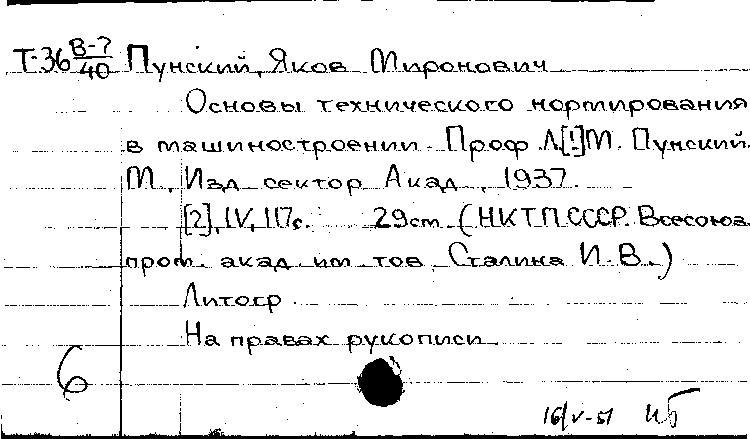 Т-36 В-7/40 Пунский, Яков Миронович
Основы технического нормирования
в машиностроении. Проф. Л[!]М. Пунский.
М., Изд. сектор Акад., 1937.
[2], IV, 117с. 29см (НКТП СССР. Всесоюз.
пром. акад. им. тов. Сталина И.В.)
Литогр.
На правах рукописи
6
16/V-51